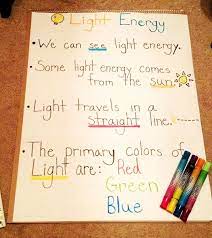 Light Energy
• We can see light energy.
• Some light energy comes
from the sun.
• Light travels in a
straight line.
• The primary colors of
Light are: Red
Green
Blue